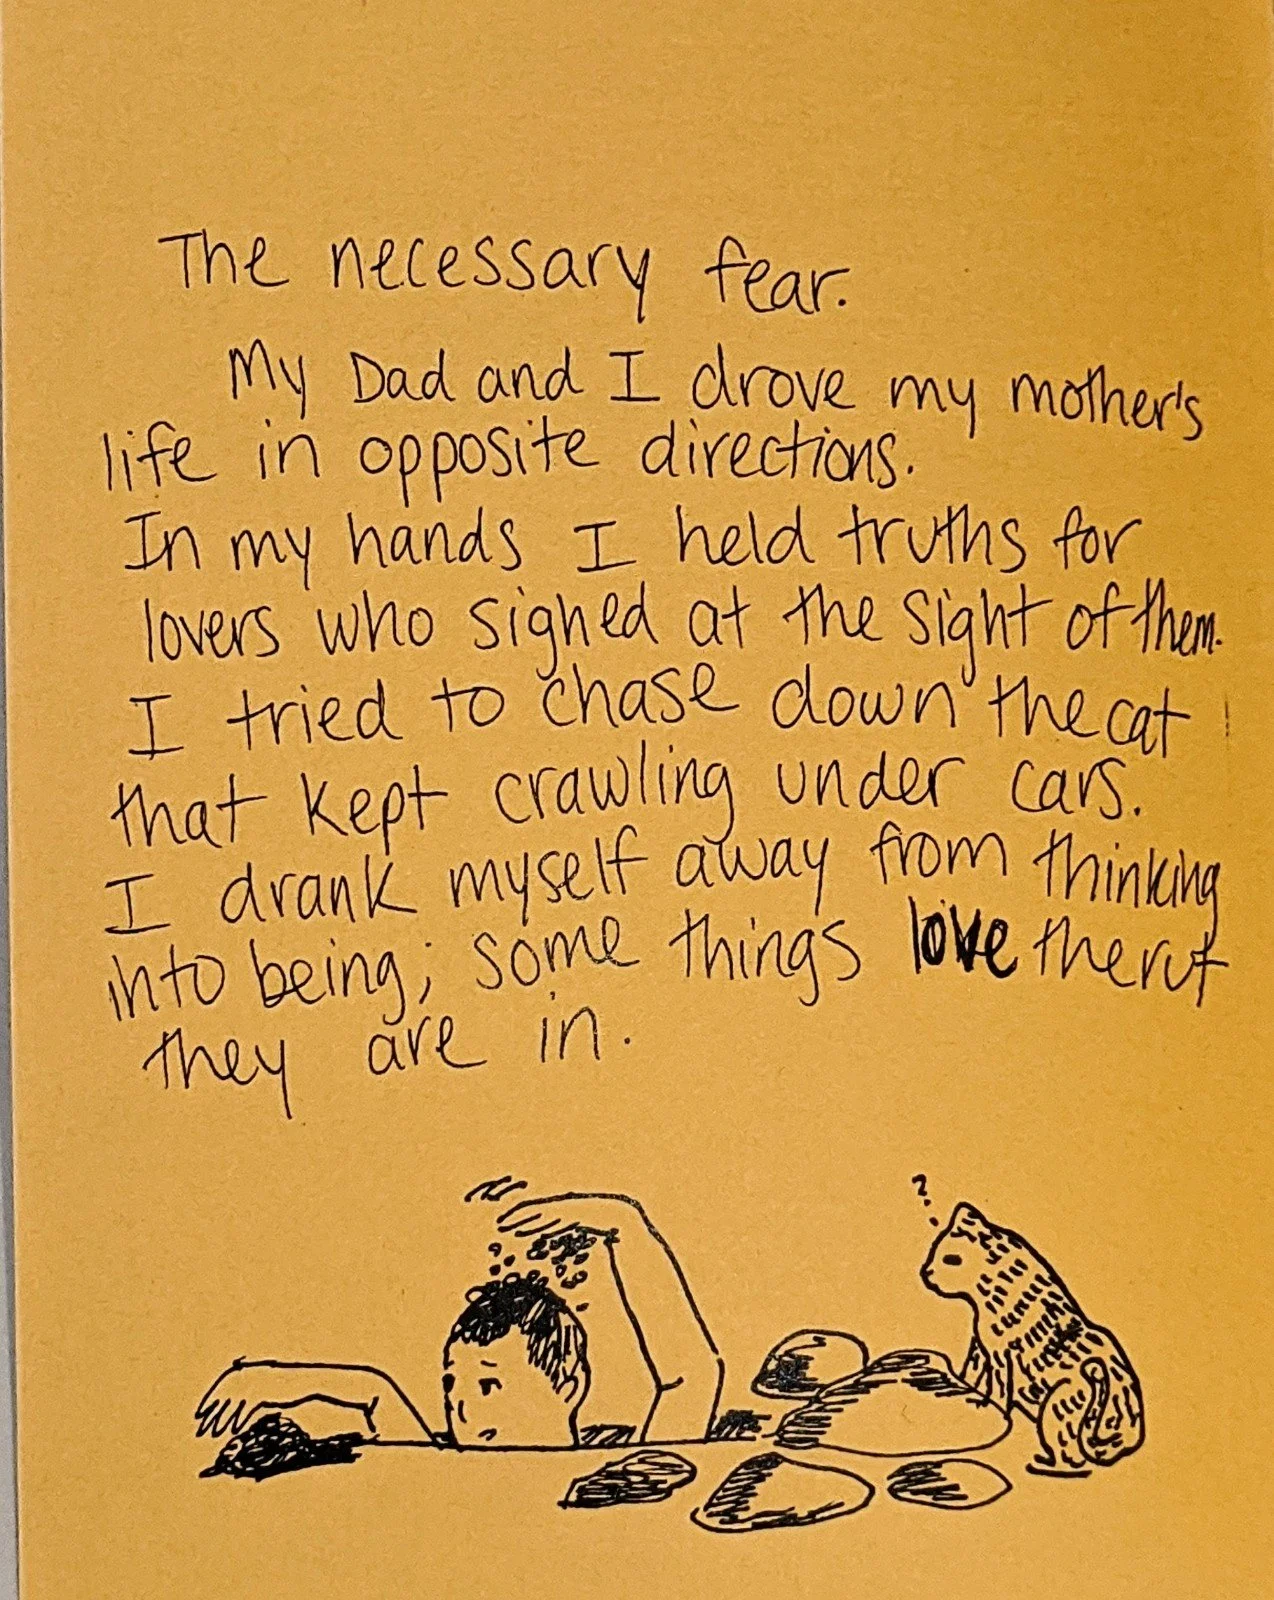 The necessary fear.
My Dad and I drove my mother's
life in opposite directions.
In my hands I held truths for
lovers who sighed at the sight of them.
I tried to chase down the cat
that kept crawling under cars.
I drank myself away from thinking
into being; some things love the rut
they are in.
?